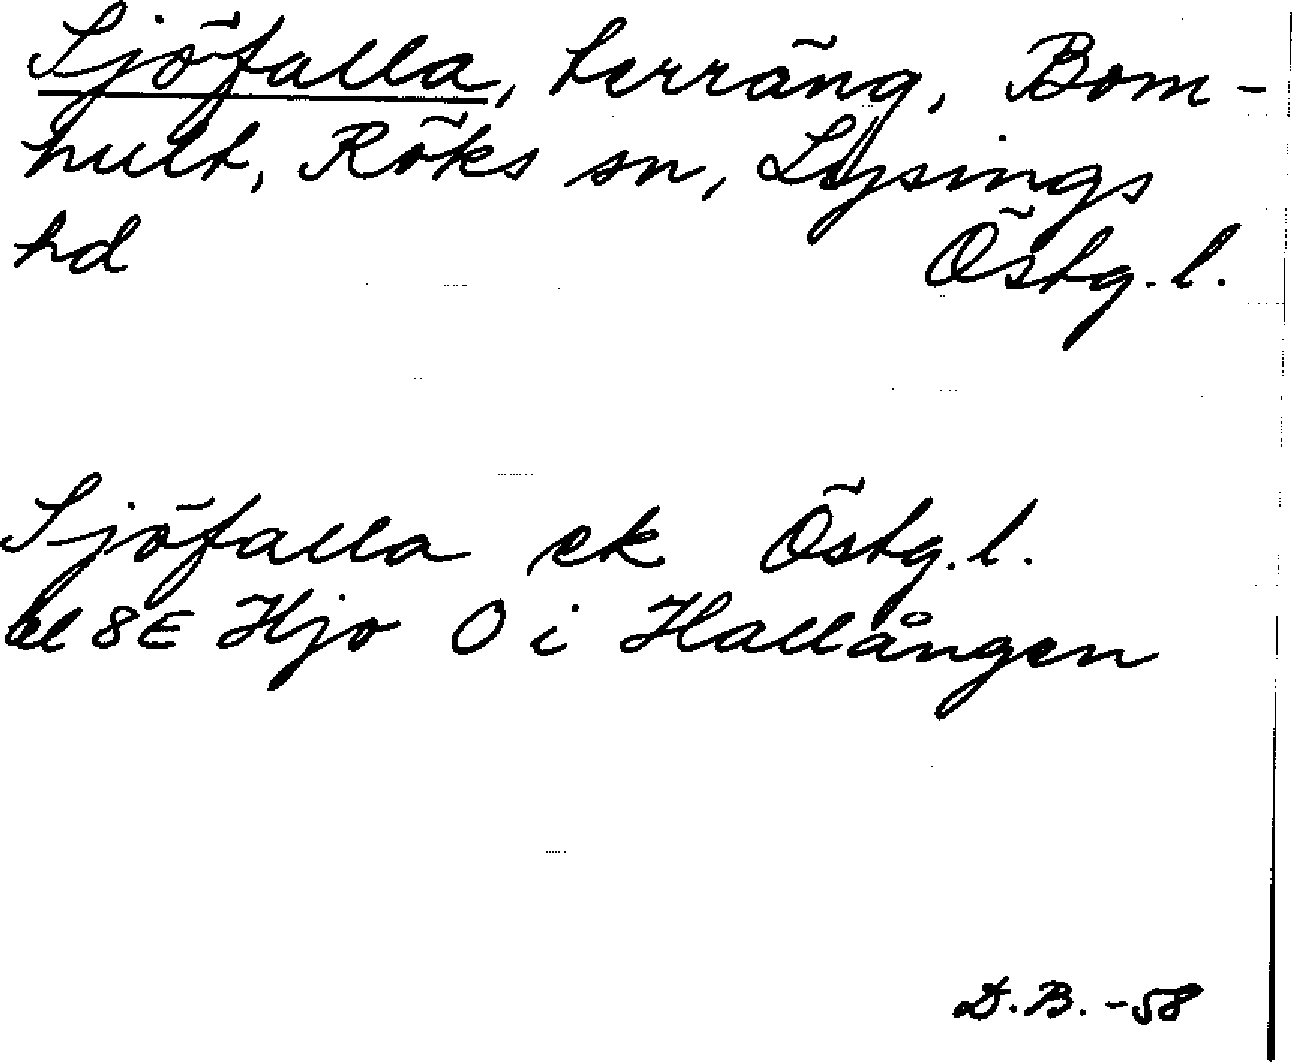 Sjöfalla, terräng, Bom-
hult, Röks sn, Lysings
hd Östg. l.
Sjöfalla ek Östg. l.
bl 8E Hjo O i Hallången
D.B. -58